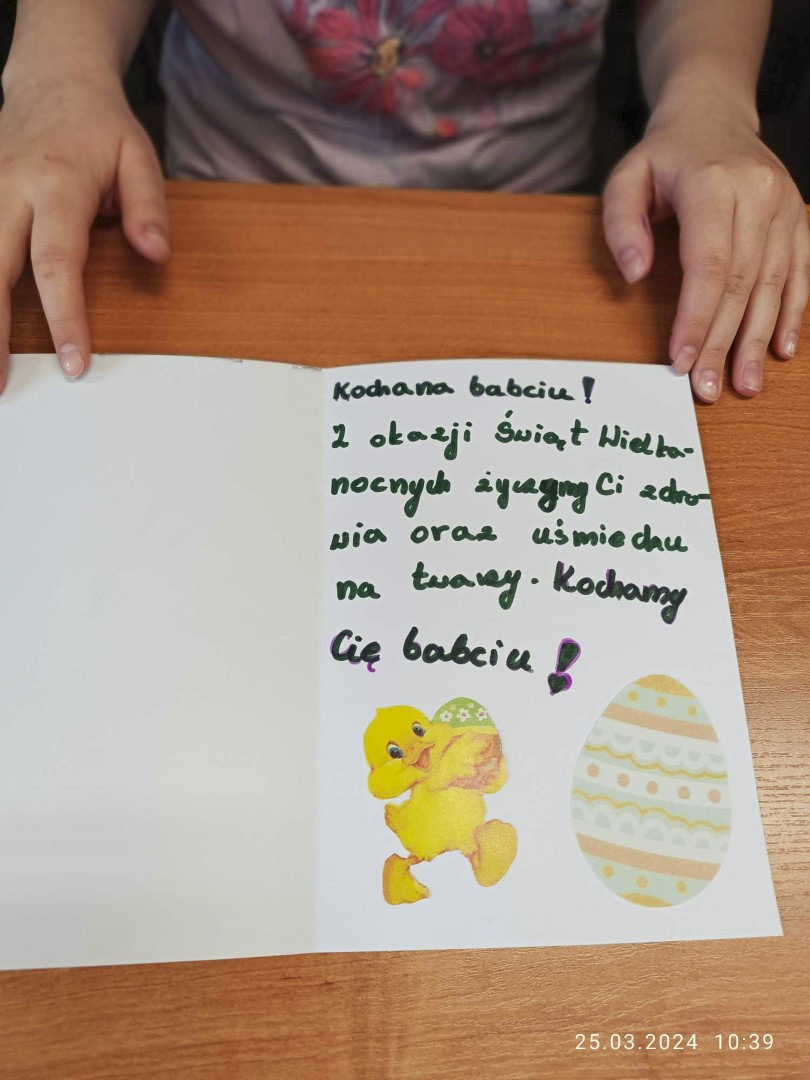 Kochana babciu!
Z okazji Świąt Wielka-
nocnych życzymy Ci zdro-
wia oraz uśmiechu
na twarzy. Kochamy
Cię babciu!
25.03.2024 10:39